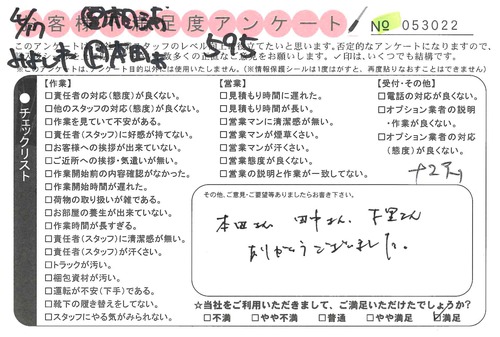 お客様満足度アンケート
№ 053022
595
このアンケートは
スタッフのレベル向上に役立てたいと思います。否定的なアンケートになりますので、
数多くの正直なご意見をお願いします。✓印は、いくつでも結構です。
※このアンケートは、アンケート目的以外には使用いたしません。(※情報保護シールは1度がすと、再度貼りなおすことはできません)
チェックリスト
【作業】
□責任者の対応(態度)が良くない。
□他のスタッフの対応(態度)が良くない。
□作業を見ていて不安がある。
□責任者(スタッフ)に好感が持てない。
□お客様への挨拶が出来ていない。
□ご近所への挨拶・気遣いが無い。
□作業開始前の内容確認がなかった。
□作業開始時間が遅れた。
□荷物の取り扱いが雑である。
□お部屋の養生が出来ていない。
□作業時間が長すぎる。
□責任者(スタッフ)に清潔感が無い。
□責任者(スタッフ)が汗くさい。
□トラックが汚い。
□梱包資材が汚い。
□運転が不安(下手)である。
□靴下の履き替えをしてない。
□スタッフにやる気がみられない。
【営業】
□見積もり時間に遅れた。
□見積もり時間が長い。
□営業マンに清潔感が無い。
□営業マンが煙草くさい。
□営業マンが汗くさい。
□営業態度が良くない。
□営業の説明と作業が一致してない。
【受付・その他】
□電話の対応が良くない。
□オプション業者の説明
・作業が良くない。
□オプション業者の対応
(態度)が良くない。
その他、ご意見・ご要望等ありましたらお書き下さい。
本田さん 田中さん 下里さん
ありがとうございました。
☆当社をご利用いただきまして、ご満足いただけたでしょうか?
□不満 □やや不満 □普通 □やや満足 ☑満足